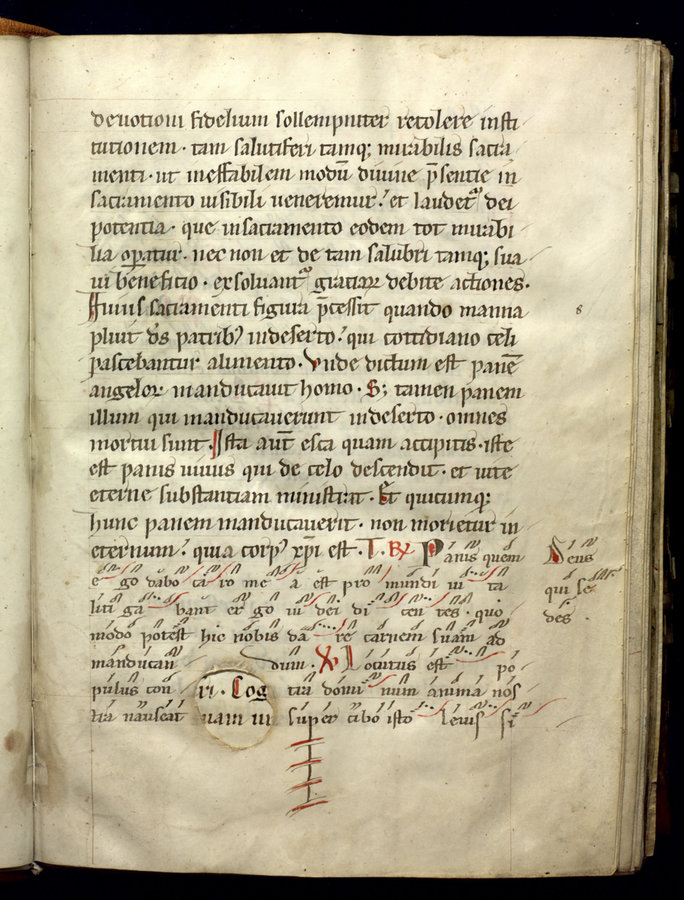 deuotioni fidelium sollempniter recolere insti
tutionem · tam salutiferi tamq; mirabilis sacra
menti · ut ineffabilem modū diuine p̄sentie in
sacramento uisibili ueneremur · et laudet᷑ dei
potentia · que in sacramento eodem tot mirabi
lia oꝑatur · nec non et de tam salubri tamq; sua
ui beneficio · exsoluant᷑ gratiaꝝ debite actiones ·
Huius sacramenti figura p̄cessit quando manna
pluit d̄s patribꝰ in deserto · qui cottidiano celi
pascebantur alimento · Vnde dictum est panē
angeloꝝ manducauit homo · S; tamen panem
illum qui manducauerunt in deserto · omnes
mortui sunt · Ista aūt esca quam accipitis · iste
est panis uiuus qui de celo descendit · et uite
eterne substantiam ministrat · Et quicumq;
hunc panem manducauerit · non morietur in
eternum · quia corpꝰ xp̄i est · T · R̸ Panis quem
e go dabo ca ro me a est pro mundi ui ta
liti ga bant er go iu dei di cen tes · quo
modo potest hic nobis da re carnem suam ad
manducan dum · V̸ Locutus est po
pulus con ir · Cog tra domi num anima nos
tra nauseat uam ui super cibo isto leuis si
Deus
qui se
des ·
8